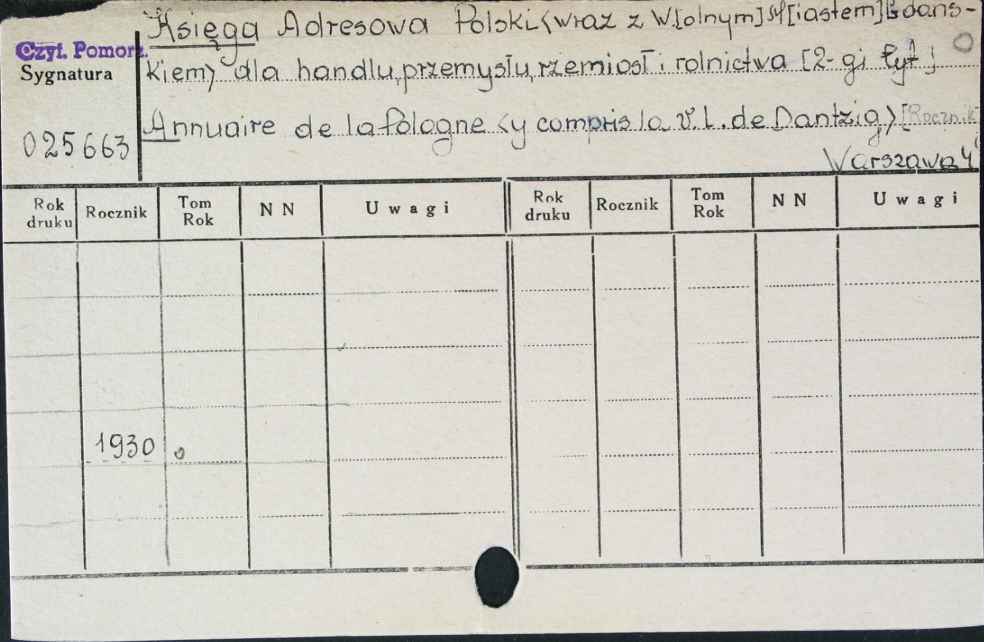 Księga Adresowa Polski <wraz z W.[olnym] M[iastem] Gdańs-
kiem> dla handlu, przemysłu, rzemiosł i rolnictwa [2-gi tyt]
Annuaire de la Pologne <y compris la V. L. de Dantzig> [Rocznik]
Warszawa 4°
Czyt. Pomorz.
Sygnatura
025663
Rok druku Rocznik Tom Rok NN Uwagi Rok druku Rocznik Tom Rok NN Uwagi
1930 o